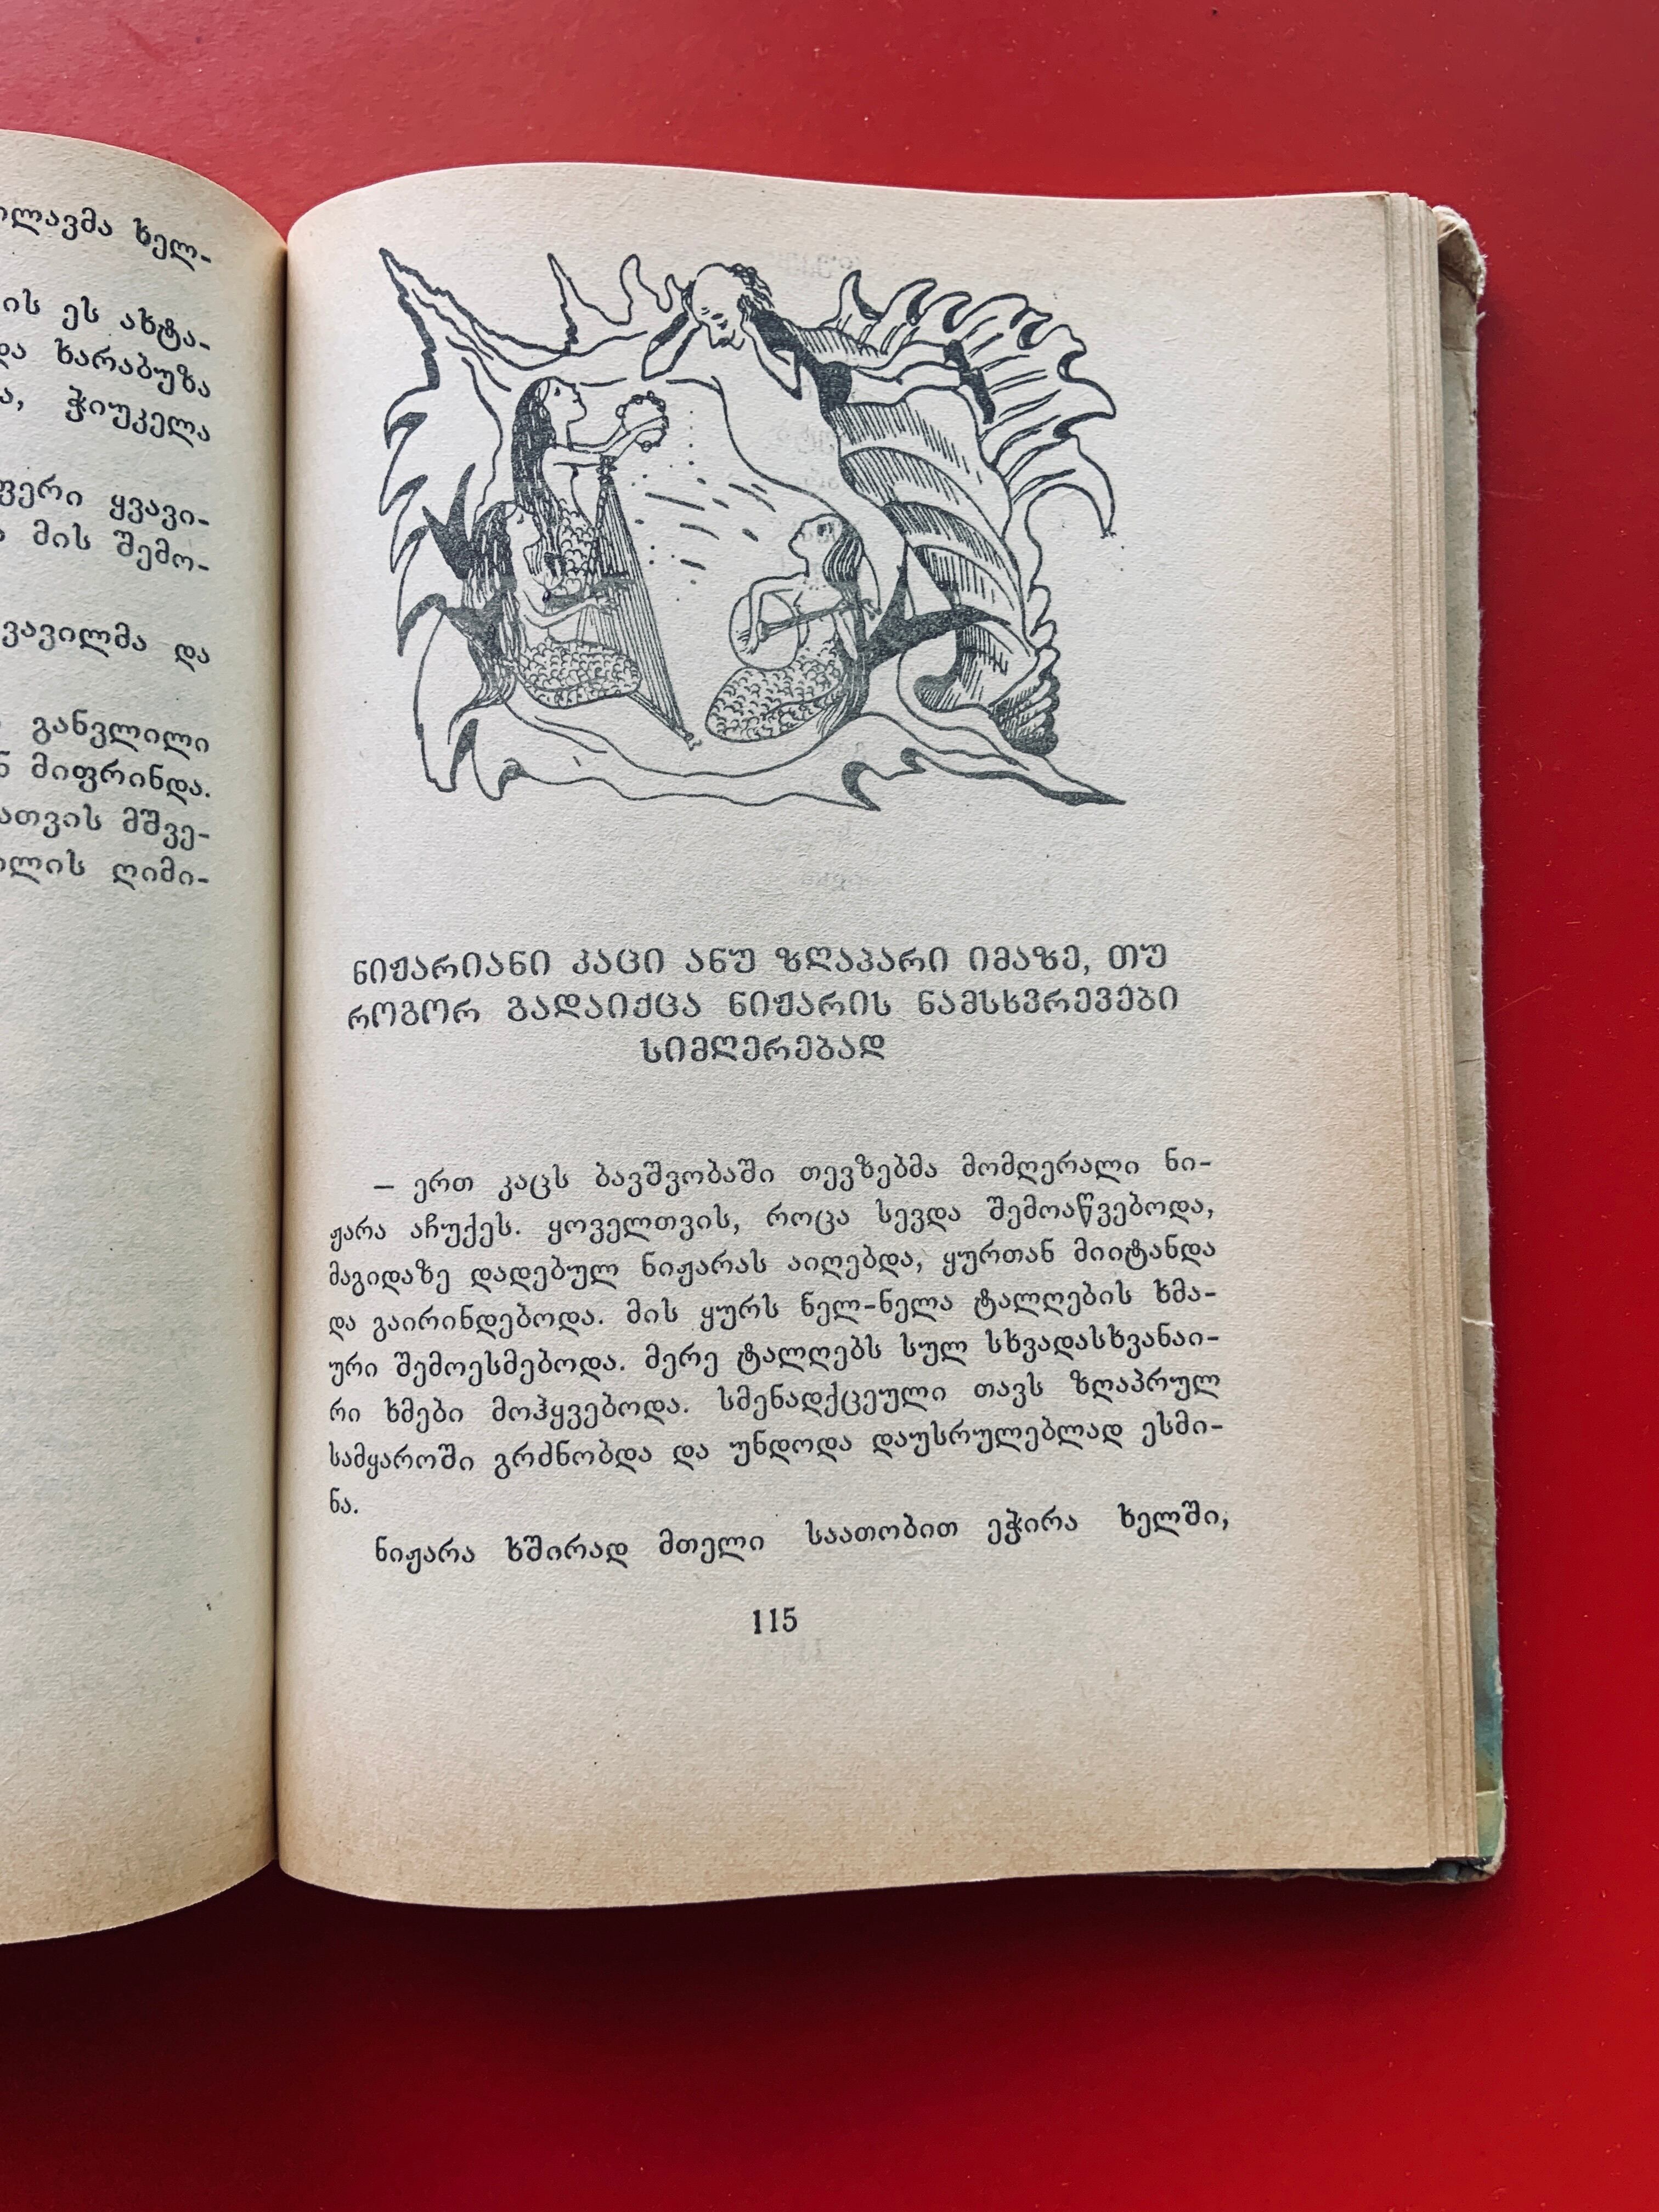 ხელ-
ის ეს ახტა-
და ხარაბუზა
ჭიუკელა
ფერი ყვავი-
მის შემო-
ვავილმა და
განვლილი
მიფრინდა.
ათვის მშვე-
ილის ღიმი-
ნიჟარიანი კაცი ანუ ზღაპარი იმაზე, თუ
როგორ გადაიქცა ნიჟარის ნამსხვრევები
სიმღერებად
— ერთ კაცს ბავშვობაში თევზებმა მომღერალი ნი-
ჟარა აჩუქეს. ყოველთვის, როცა სევდა შემოაწვებოდა,
მაგიდაზე დადებულ ნიჟარას აიღებდა, ყურთან მიიტანდა
და გაირინდებოდა. მის ყურს ნელ-ნელა ტალღების ხმა-
ური შემოესმებოდა. მერე ტალღებს სულ სხვადასხვანაი-
რი ხმები მოჰყვებოდა. სმენადქცეული თავს ზღაპრულ
სამყაროში გრძნობდა და უნდოდა დაუსრულებლად ესმი-
ნა.
ნიჟარა ხშირად მთელი საათობით ეჭირა ხელში,
115